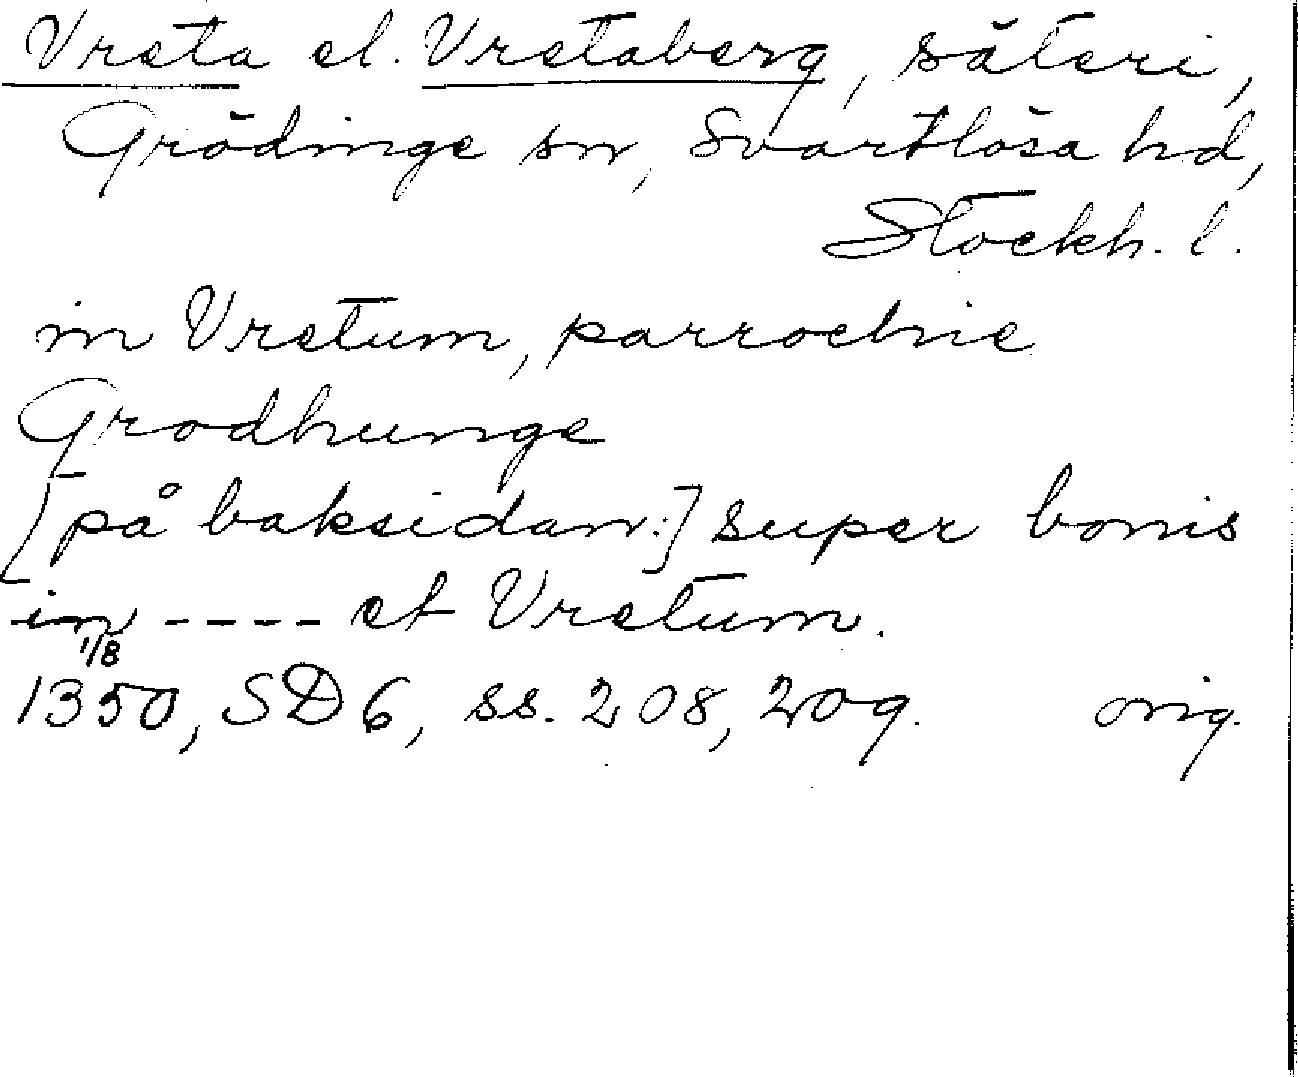 Vreta el. Vretaberg, säteri,
Grödinge sn, Svartlösa hd,
Stockh. l.
in Vretum, parrochie
Grodhunge
[på baksidan:] super bonis
in ---- et Vretum.
1/8
1350, SD 6, ss. 208, 209. orig.